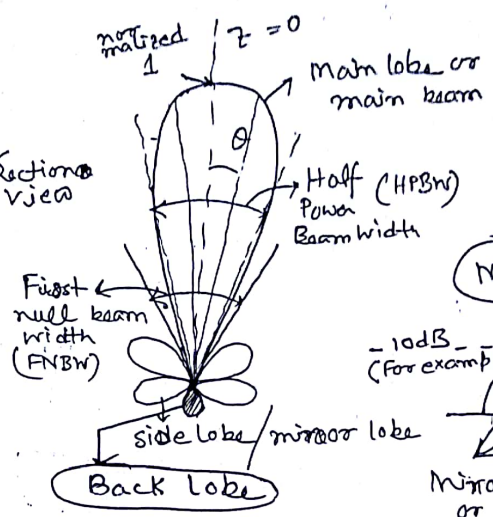 nor
malized
1
z = 0
Main lobe or
main beam
θ
view
Half (HPBW)
Power
Beam width
First
null beam
width
(FNBW)
-10dB
(For examp
side lobe / mirror lobe
Back Lobe
or